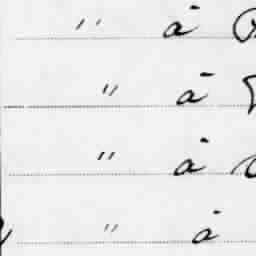 " à
" à
" à
" à